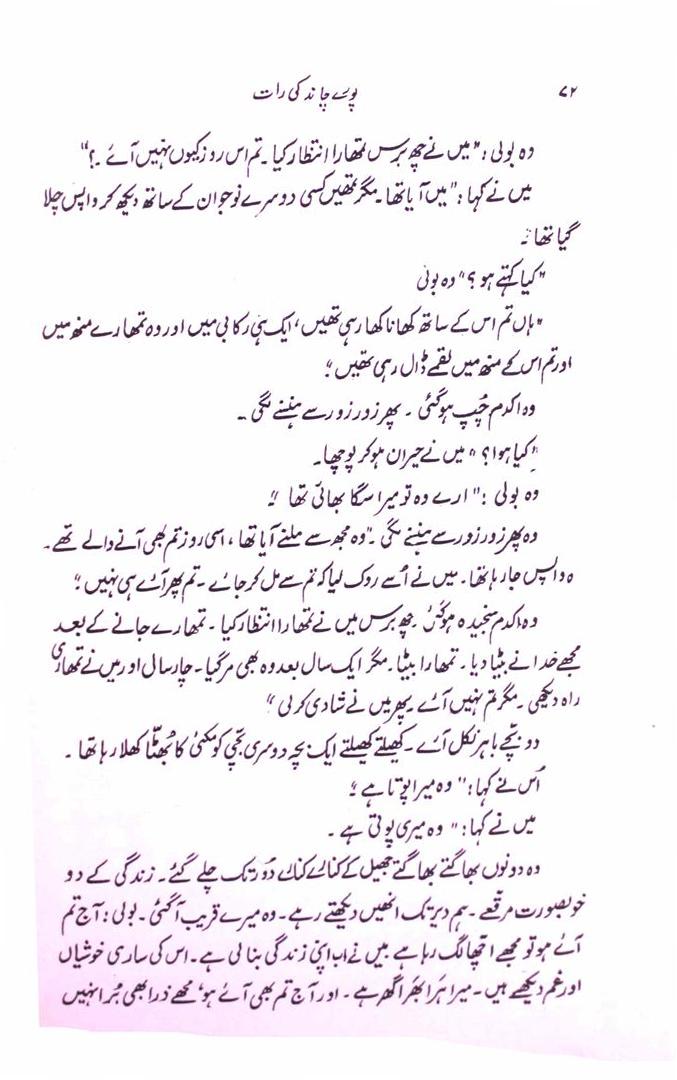 ۷۲ پورے چاند کی رات
وہ بولی : "میں نے چھ برس تمھارا انتظار کیا ۔ تم اس روز کیوں نہیں آئے ۔؟"
میں نے کہا : "میں آیا تھا ۔ مگر تمھیں کسی دوسرے نوجوان کے ساتھ دیکھ کر واپس چلا
گیا تھا ۔"
"کیا کہتے ہو ؟" وہ بولی
"ہاں تم اس کے ساتھ کھانا کھا رہی تھیں، ایک ہی رکابی میں اور وہ تمھارے منھ میں
اور تم اس کے منھ میں لقمے ڈال رہی تھیں "
وہ اکدم چُپ ہو گئی ۔ پھر زور زور سے ہنسنے لگی ۔
"کیا ہوا ؟" میں نے حیران ہو کر پوچھا ۔
وہ بولی : "ارے وہ تو میرا سگا بھائی تھا "
وہ پھر زور زور سے ہنسنے لگی ۔ "وہ مجھ سے ملنے آیا تھا ، اسی روز تم بھی آنے والے تھے ۔
وہ واپس جا رہا تھا ۔ میں نے اُسے روک لیا کہ تم سے مل کر جائے ۔ تم پھر آئے ہی نہیں "
وہ اکدم سنجیدہ ہو گئی چھ برس میں نے تمھارا انتظار کیا ۔ تمھارے جانے کے بعد
مجھے خدا نے بیٹا دیا ۔ تمھارا بیٹا ۔ مگر ایک سال بعد وہ بھی مر گیا ۔ چار سال اور میں نے تمھاری
راہ دیکھی ۔ مگر تم نہیں آئے ۔ پھر میں نے شادی کر لی "
دو بچّے باہر نکل آئے ۔ کھیلتے کھیلتے ایک بچہ دوسری بچّی کو مکئی کا بُھٹّا کھلا رہا تھا ۔
اُس نے کہا : "وہ میرا پوتا ہے "
میں نے کہا : "وہ میری پوتی ہے ۔
وہ دونوں بھاگتے بھاگتے جھیل کے کنارے کنارے دُور تک چلے گئے ۔ زندگی کے دو
خوبصورت مرقعے ۔ ہم دیر تک انھیں دیکھتے رہے ۔ وہ میرے قریب آ گئی ۔ بولی : آج تم
آئے ہو تو مجھے اچھا لگ رہا ہے میں نے اب اپنی زندگی بنا لی ہے ۔ اس کی ساری خوشیاں
اور غم دیکھے ہیں ۔ میرا ہَرا بھَرا گھر ہے ۔ اور آج تم بھی آئے ہو، مجھے ذرا بھی بُرا نہیں